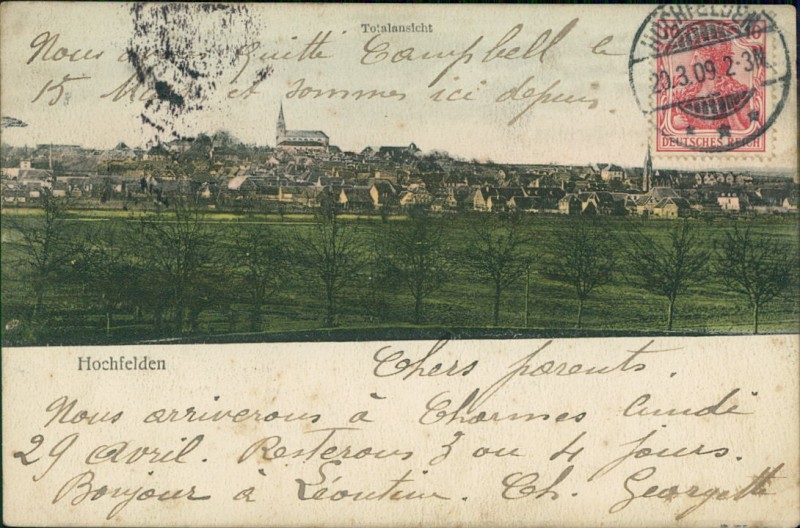 Totalansicht
Nous avons quitté Campbell le
15 Mars et sommes ici depuis.
HOCHFELDEN
20.3.09.2-3N
DEUTSCHES REICH
Hochfelden
Chers parents.
Nous arriverons à Charmes lundi
29 Avril. Resterons 3 ou 4 jours.
Bonjour à Léontine. Ch. Georgette